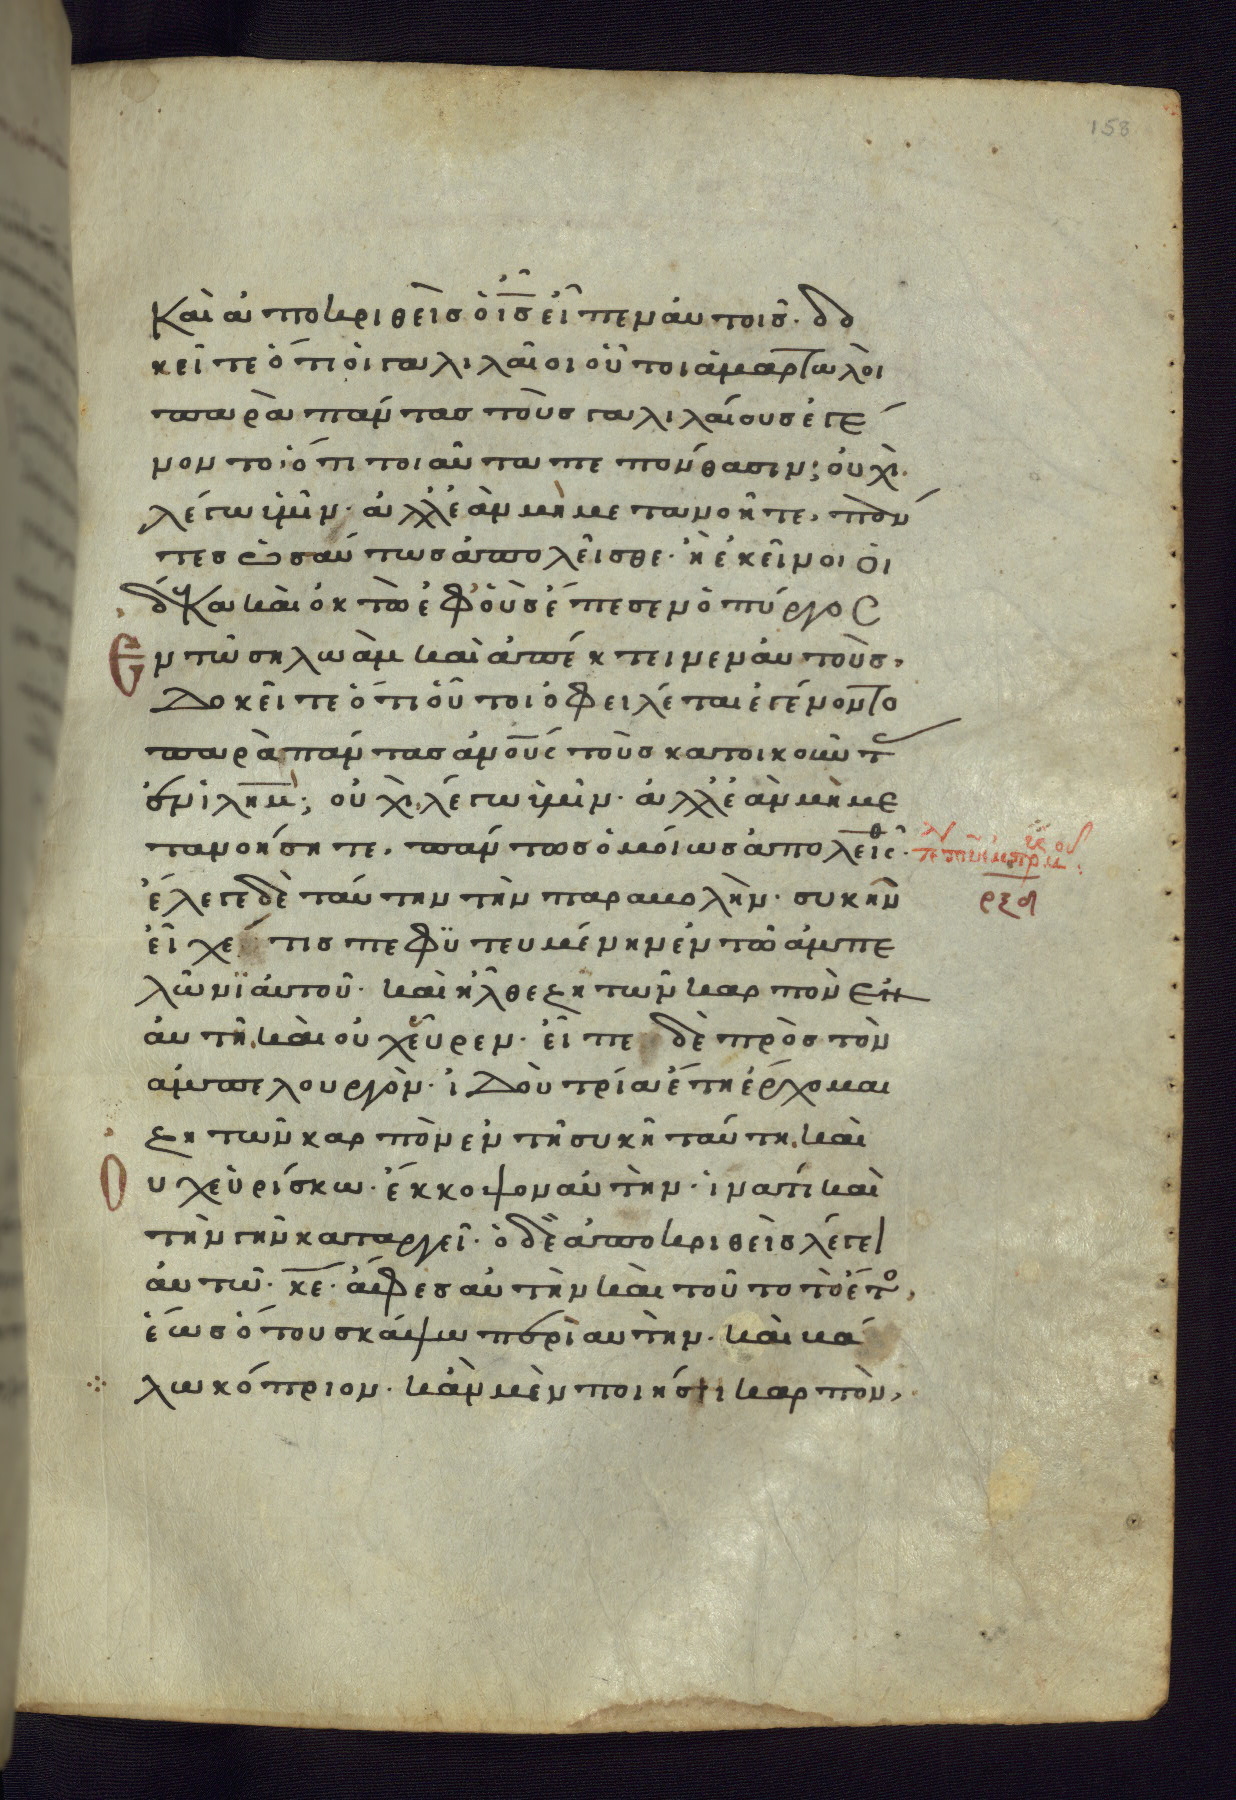 158
Καὶ ἀποκριθεὶς ὁ ις εἶπεν αὐτοῖς· δο
κεῖτε ὅτι οἱ γαλιλαῖοι οὗτοι ἁμαρτωλοὶ
παρὰ πάντας τοὺς γαλιλαίους ἐγέ
νοντο· ὅτι τοιαῦτα πεπόνθασιν; οὐχὶ
λέγω ὑμῖν· ἀλλ' ἐὰν μὴ μετανοῆτε, πάν
τες ὡσαύτως ἀπολεῖσθε· ἢ ἐκεῖνοι οἱ
δέκα καὶ ὀκτὼ ἐφ' οὓς ἔπεσεν ὁ πύργος
Ἐν τῶ σηλωὰμ καὶ ἀπέκτεινεν αὐτοὺς,
Δοκεῖτε ὅτι οὗτοι ὀφειλέται ἐγένοντο
παρὰ πάντας ἀνους τοὺς κατοικοῦντ
ἐν ἱλημ; οὐχὶ λέγω ὑμῖν· ἀλλ' ἐὰν μὴ με
τανοήσητε, πάντες ὁμοίως ἀπολεῖσθε·
ἔλεγε δὲ ταύτην τὴν παραβολὴν· συκῆν
εἶχέ τις πεφϋτευμένην ἐν τῶ ἀμπε
λῶνϊ αὐτοῦ· καὶ ἦλθε ζητῶν καρπὸν ἐν
αὐτῆ καὶ οὐχ εὗρεν· εἶπε δὲ πρὸς τὸν
ἀμπελουργὸν· ἰδοὺ τρία ἔτη ἔρχομαι
ζητῶν καρπὸν ἐν τῆ συκῆ ταύτη, καὶ
Οὐχ εὑρίσκω· ἔκκοψον αὐτὴν· ἱνατί καὶ
τὴν γῆν καταργεῖ· ὁ δὲ ἀποκριθεὶς λέγει
αὐτῶ· κε· ἄφες αὐτὴν καὶ τοῦτο τὸ ἔτο,
ἕως ὅτου σκάψω περὶ αὐτὴν· καὶ βά
λω κόπριον· κἂν μὲν ποιήση καρπὸν,